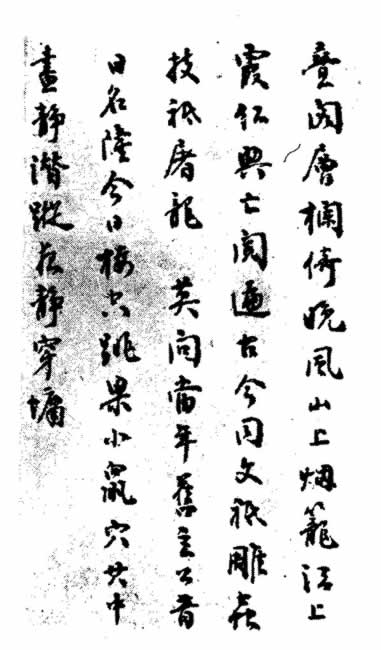 疊閣層欄倚晚風山上烟籠江上
霞红興亡閱遍古今同文祇雕虫
技祇屠龍 莫问當年舊主公昔
日名隆今日樓空跳梁小鼠穴其中
晝靜潛蹤夜靜穿墉